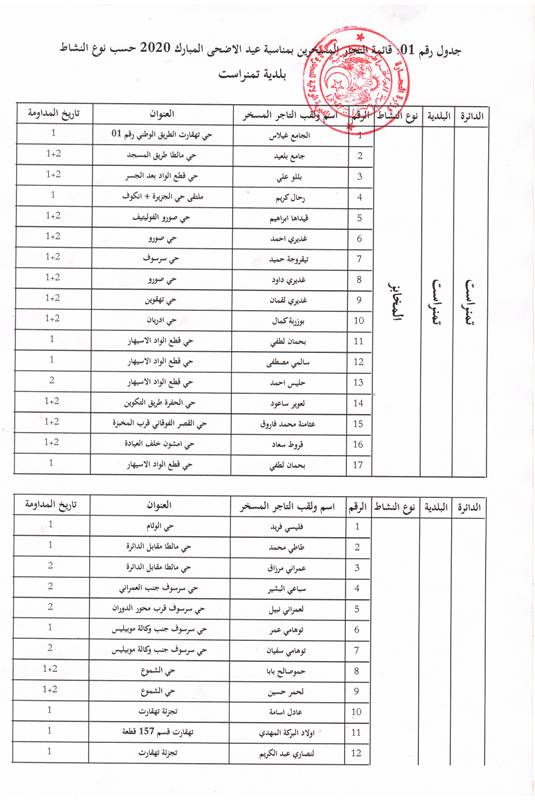 جدول رقم 01: قائمة التجار المسخرين بمناسبة عيد الاضحى المبارك 2020 حسب نوع النشاط
بلدية تمنراست
الدائرة البلدية نوع النشاط الرقم اسم ولقب التاجر المسخر العنوان تاريخ المداومة
تمنراست تمنراست المخابز
1 الجامع غيلاس حي تهقارت الطريق الوطني رقم 01 1
2 جامع بلعيد حي مالطا طريق المسجد 1+2
3 بللو علي حي قطع الواد بعد الجسر 1+2
4 رحال كريم ملتقى حي الجزيرة + انكوف 1
5 فيداها ابراهيم حي صورو الفوليتيف 1+2
6 غديري احمد حي صورو 1+2
7 تيقروجة حميد حي سرسوف 1+2
8 غديري داود حي صورو 1+2
9 غديري لقمان حي تهقوين 1+2
10 بوزرية كمال حي ادريان 1+2
11 بحمان لطفي حي قطع الواد الاسيهار 1
12 سالمي مصطفى حي قطع الواد الاسيهار 1
13 حليس احمد حي قطع الواد الاسيهار 2
14 لعوير ساعود حي الحفرة طريق التكوين 1+2
15 عثامنة محمد فاروق حي القصر الفوقاني قرب المخبزة 1+2
16 قروط سعاد حي امشون خلف العيادة 1+2
17 بحمان لطفي حي قطع الواد الاسيهار 1
الدائرة البلدية نوع النشاط الرقم اسم ولقب التاجر المسخر العنوان تاريخ المداومة
1 فليسي فريد حي الوئام 1
2 طاطي محمد حي مالطا مقابل الدائرة 1
3 عمراني مرزاق حي مالطا مقابل الدائرة 2
4 سباعي البشير حي سرسوف جنب العمراني 2
5 لعمراني نبيل حي سرسوف قرب محور الدوران 2
6 توهامي عمر حي سرسوف جنب وكالة موبيليس 1
7 توهامي سفيان حي سرسوف جنب وكالة موبيليس 2
8 حموصالح بابا حي الشموع 1+2
9 لحمر حسين حي الشموع 1+2
10 عادل اسامة تجزئة تهقارت 1
11 اولاد البركة المهدي تهقارت قسم 157 قطعة 1
12 لنصاري عبد الكريم تجزئة تهقارت 1